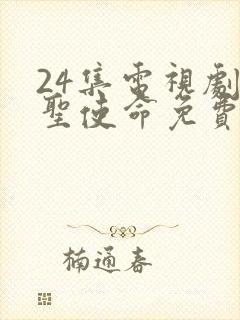 24集電視劇
聖使命免費
楠通春